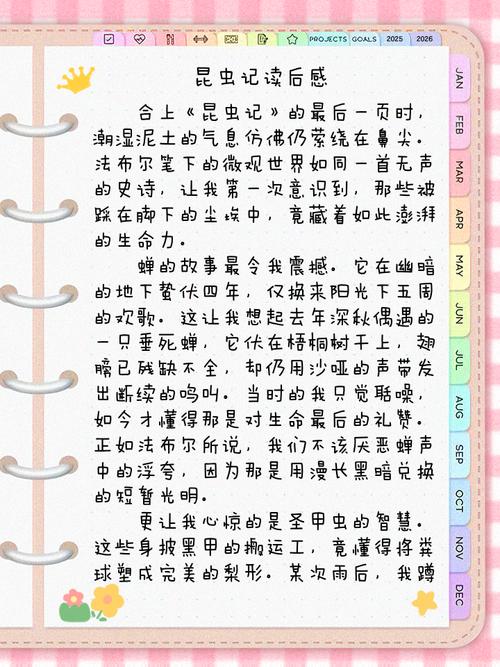 PROJECTS GOALS 2025 2026
昆虫记读后感
合上《昆虫记》的最后一页时，
潮湿泥土的气息仿佛仍萦绕在鼻尖。
法布尔笔下的微观世界如同一首无声
的史诗，让我第一次意识到，那些被
踩在脚下的尘埃中，竟藏着如此澎湃
的生命力。
蝉的故事最令我震撼。它在幽暗
的地下蛰伏四年，仅换来阳光下五周
的欢歌。这让我想起去年深秋偶遇的
一只垂死蝉，它伏在梧桐树干上，翅
膀已残缺不全，却仍用沙哑的声带发
出断续的鸣叫。当时的我只觉聒噪，
如今才懂得那是对生命最后的礼赞。
正如法布尔所说，我们不该厌恶蝉声
中的浮夸，因为那是用漫长黑暗兑换
的短暂光明。
更让我心惊的是圣甲虫的智慧。
这些身披黑甲的搬运工，竟懂得将粪
球塑成完美的梨形。某次雨后，我蹲
JAN
FEB
MAR
APR
MAY
JUN
JUL
AUG
SEP
OCT
NOV
DEC